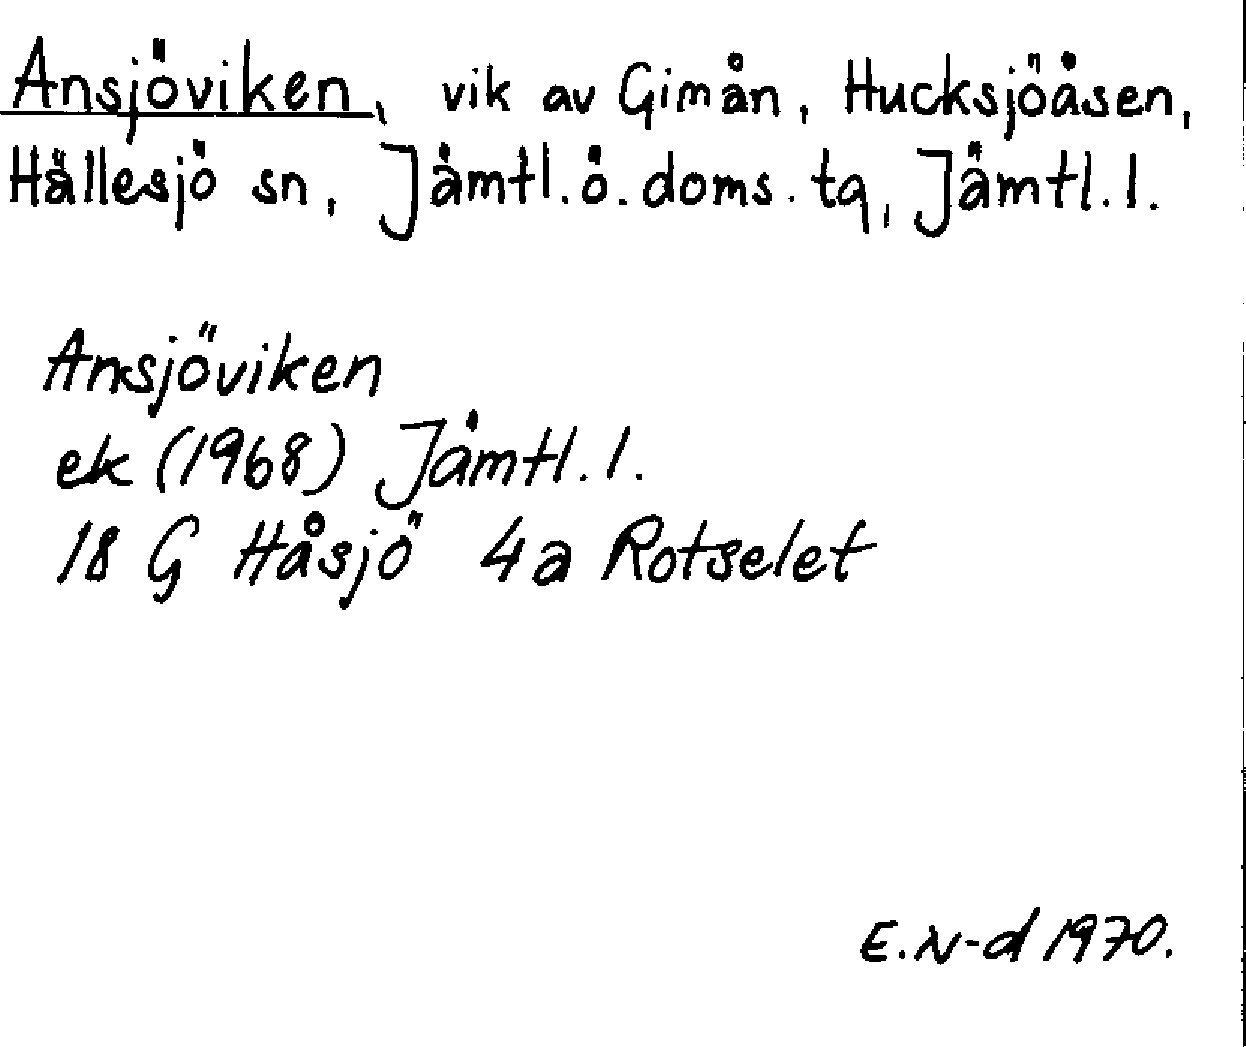 Ansjöviken, vik av Gimån, Hucksjöåsen,
Hällesjö sn, Jämtl.ö.doms.tg, Jämtl.l.
Ansjöviken
ek (1968) Jämtl.l.
18 G Håsjö 4a Rotselet
E.N-d 1970.